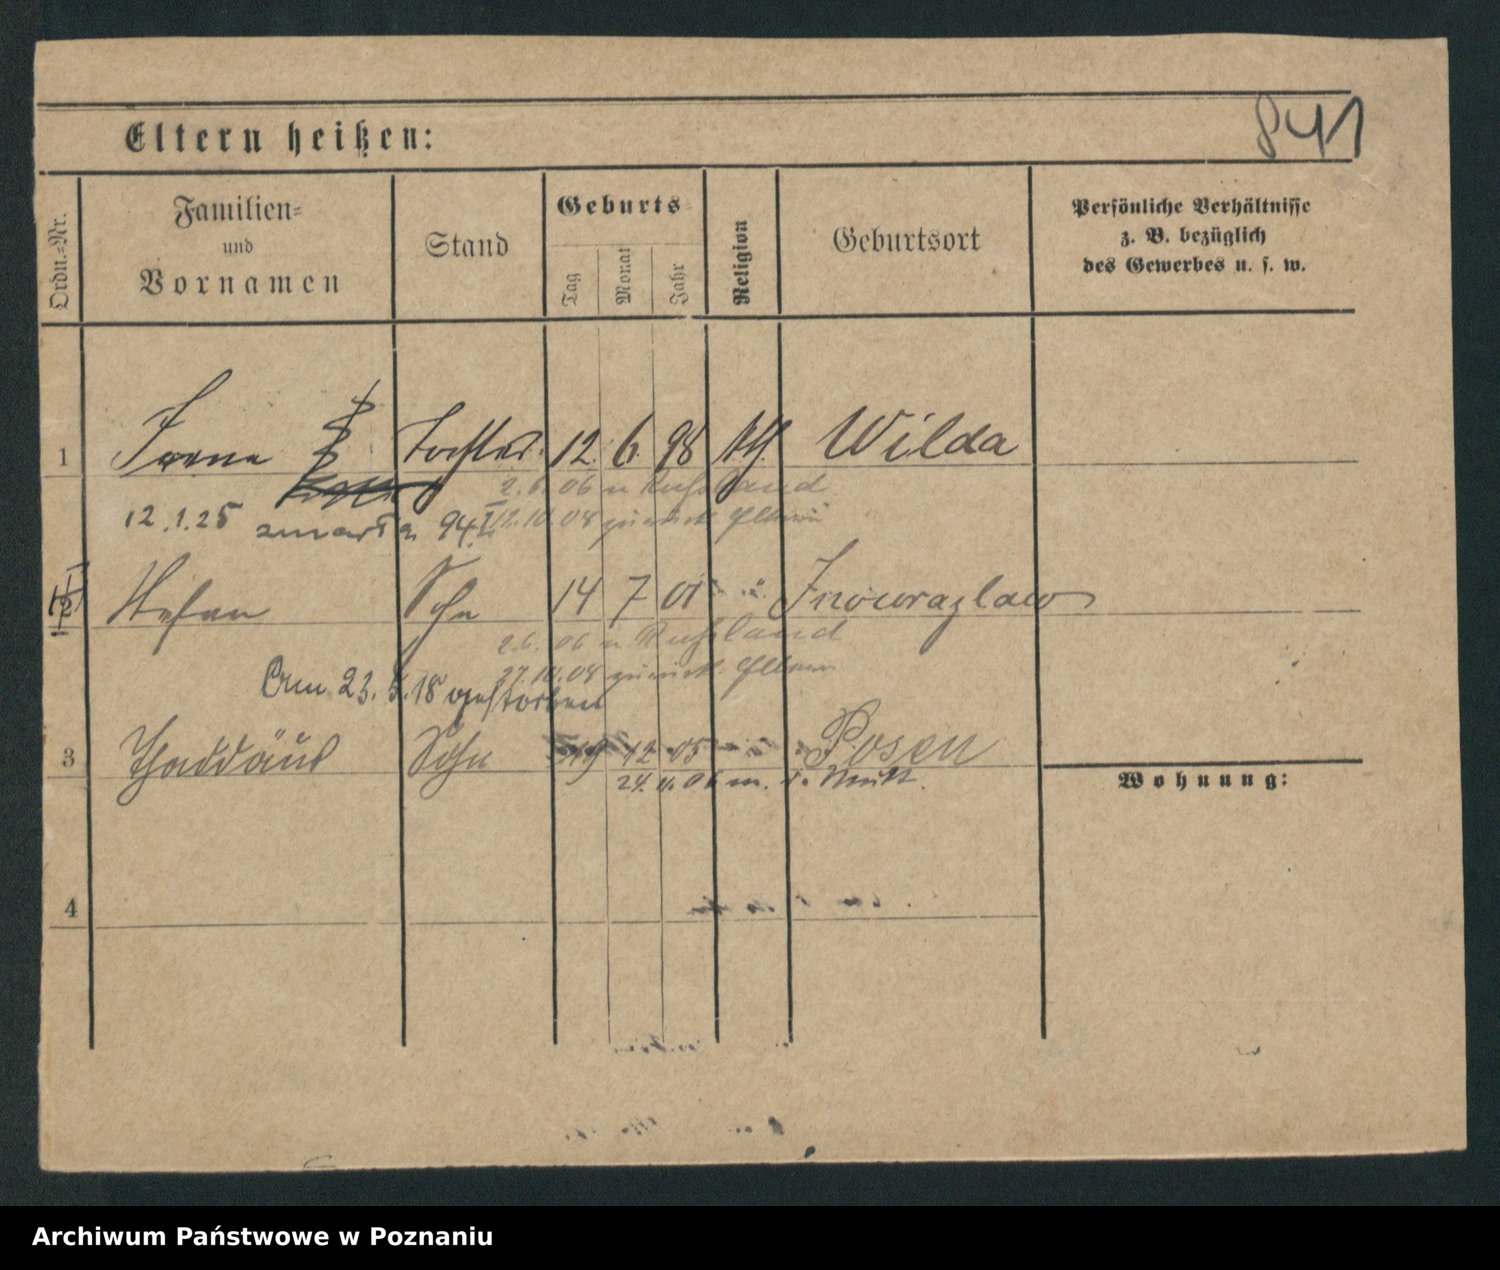 841
Eltern heißen:
Ordn.-Nr.
Familien-
und
Vornamen
Stand
Geburts-
Tag
Monat
Jahr
Religion
Geburtsort
Persönliche Verhältnisse
z. B. bezüglich
des Gewerbes u. s. w.
1 Irene Tochter 12. 6. 98 kth. Wilda
2.6.06 n Rußland
12.1.25 zmarła 94
12.10.08 zurück Eltern
2 Stefan Sohn 14 7 01 " " Inowrazlaw
2.6.06 n Rußland
27.10.08 zurück Eltern
Am 23. 5. 18 gestorben
3 Thaddäus Sohn 19 12 05 " " Posen
24. 11. 06 m. d. Mutt.
Wohnung:
4
Archiwum Państwowe w Poznaniu